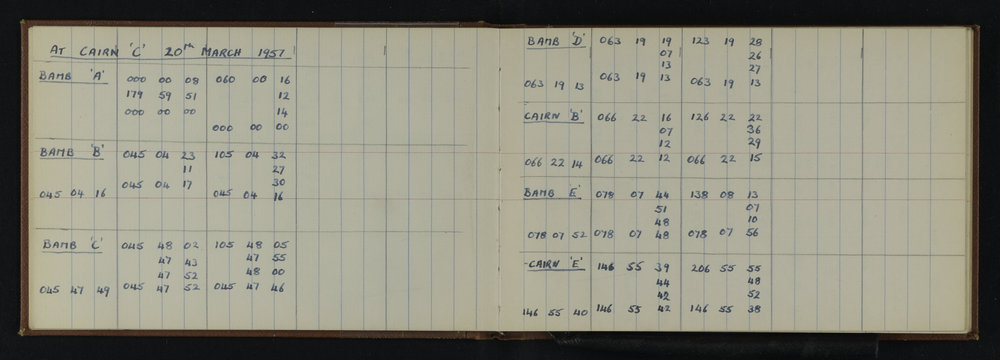 AT CAIRN 'C' 20TH MARCH 1957
BAMB 'A' 000 00 08 060 00 16
179 59 51 12
000 00 00 14
000 00 00
BAMB 'B' 045 04 23 105 04 32
11 27
045 04 17 30
045 04 16 045 04 16
BAMB 'C' 045 48 02 105 48 05
47 43 47 55
47 52 48 00
045 47 49 045 47 52 045 47 46
BAMB 'D' 063 19 19 123 19 28
07 26
13 27
063 19 13 063 19 13 063 19 13
CAIRN 'B' 066 22 16 126 22 22
07 36
12 29
066 22 14 066 22 12 066 22 15
BAMB E' 078 07 44 138 08 13
51 07
48 10
078 07 52 078 07 48 078 07 56
CAIRN 'E' 146 55 39 206 55 55
44 48
42 52
146 55 40 146 55 42 146 55 38